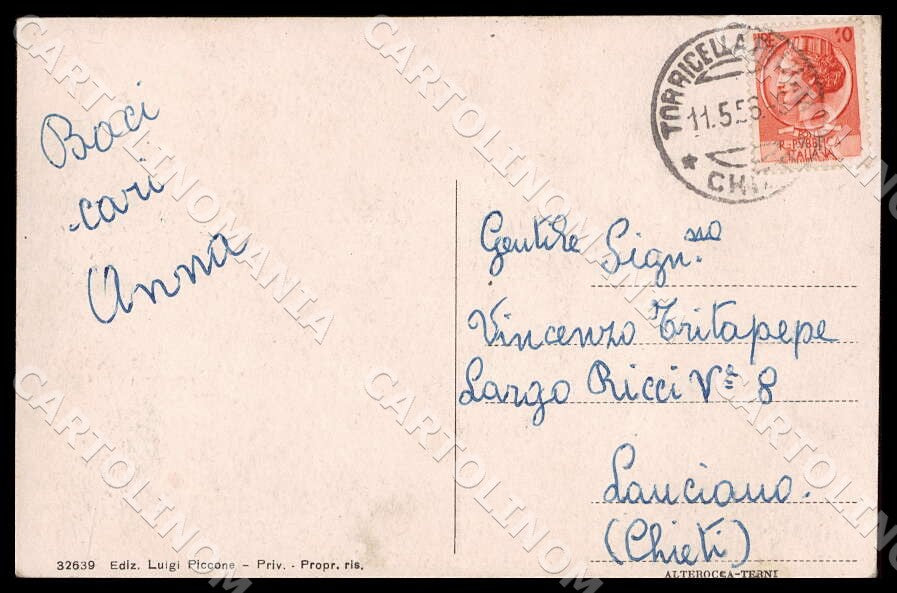 Baci
cari
Anna
TORRICELLA
11.5.56
CHIETI
10
REPUBBLICA
ITALIANA
Gentile Sign.na
Vincenzo Tritapepe
Largo Ricci N° 8
Lanciano.
(Chieti)
32639 Ediz. Luigi Piccone – Priv. - Propr. ris.
ALTEROCCA-TERNI
CARTOLINOMANIA
CARTOLINOMANIA
CARTOLINOMANIA
CARTOLINOMANIA